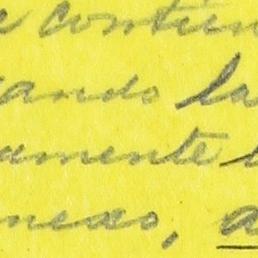 e contin
ando la
amente
nexo, a